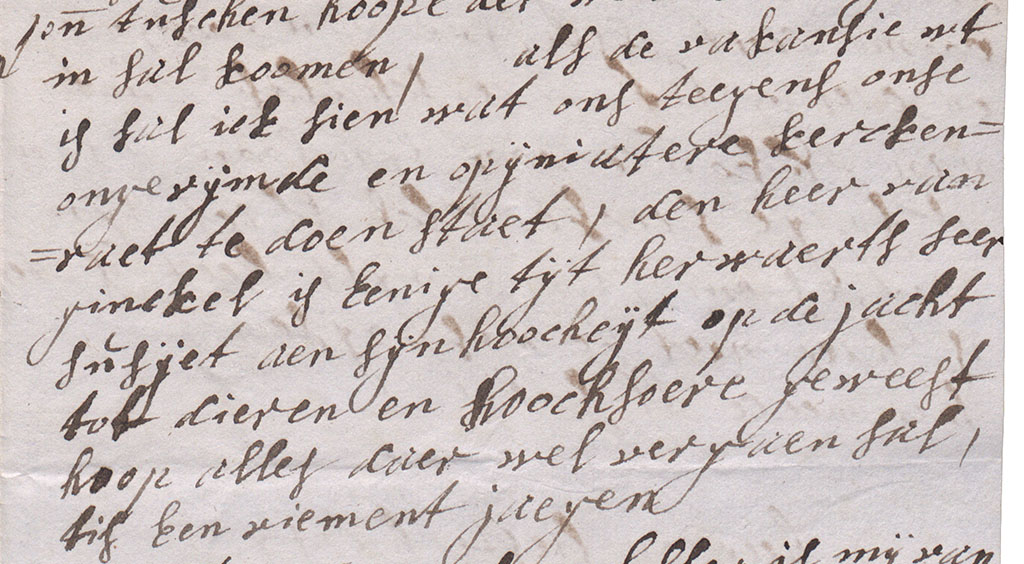 tuschen hoope
in sal koomen, als de vakansie wt
is sal ick sien wat ons teegens onse
ongerijmde en opijniatere kercken=
=raet te doen staet, den heer van
ginckel is eenige tijt herwaerts seer
susijet aen sijn hoocheijt op de jacht
tot dieren en hoochsoere geweest
hoop alles daer wel vergaen sal,
tis een viement jaegen
is mij van